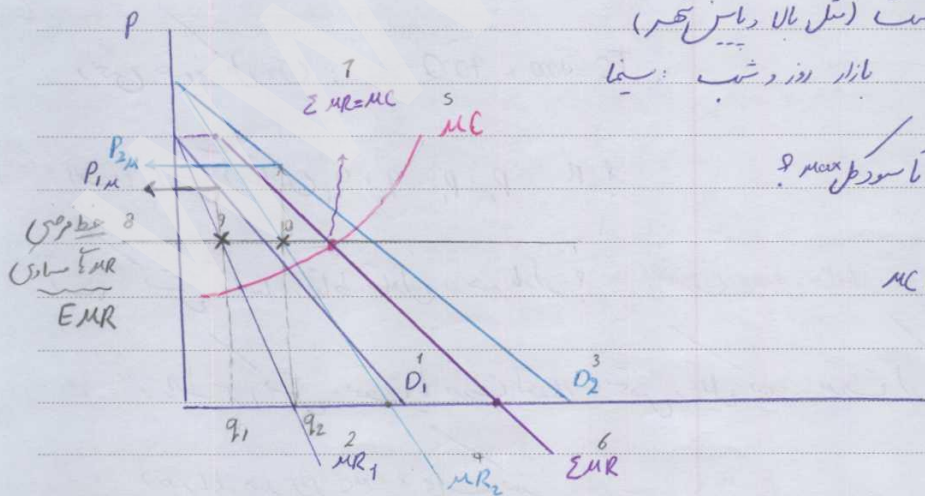 (مثل بالا و پایین شهر)
بازار روز و شب : سیما
تا سود کل max ؟
P
7
Σ MR = MC
5
MC
P2M
P1M
خط فرضی 8
ΣMR مساوی
EMR
9
10
MC
1
D1
3
D2
q1
q2
2
MR1
4
MR2
6
ΣMR